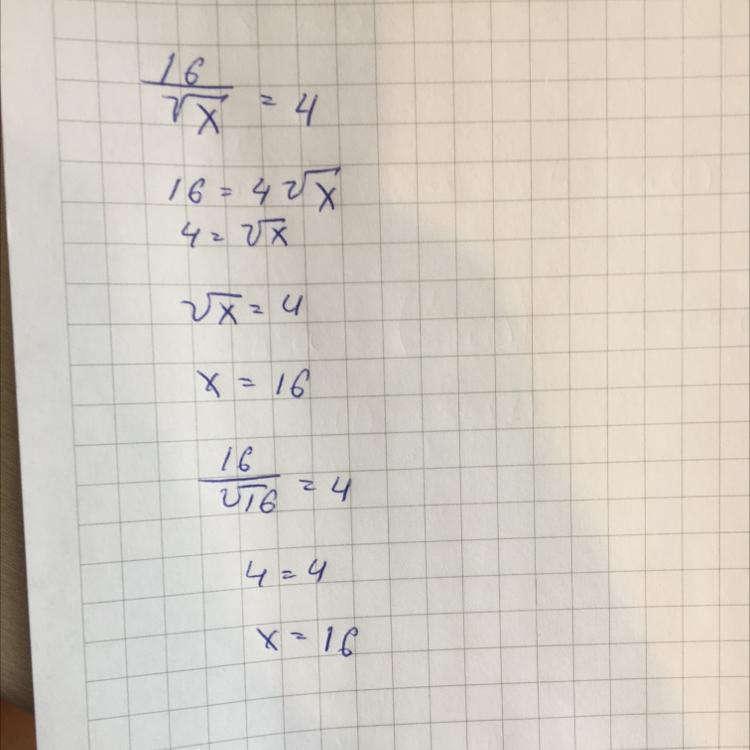 16/√x = 4
16 = 4√x
4 = √x
√x = 4
x = 16
16/√16 = 4
4 = 4
x = 16